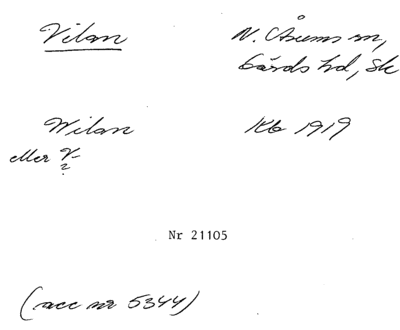 Vilan N. Åsums sn,
Gärds hd, Sk
Wilan Kb 1919
eller V-
?
Nr 21105
(acc nr 5344)